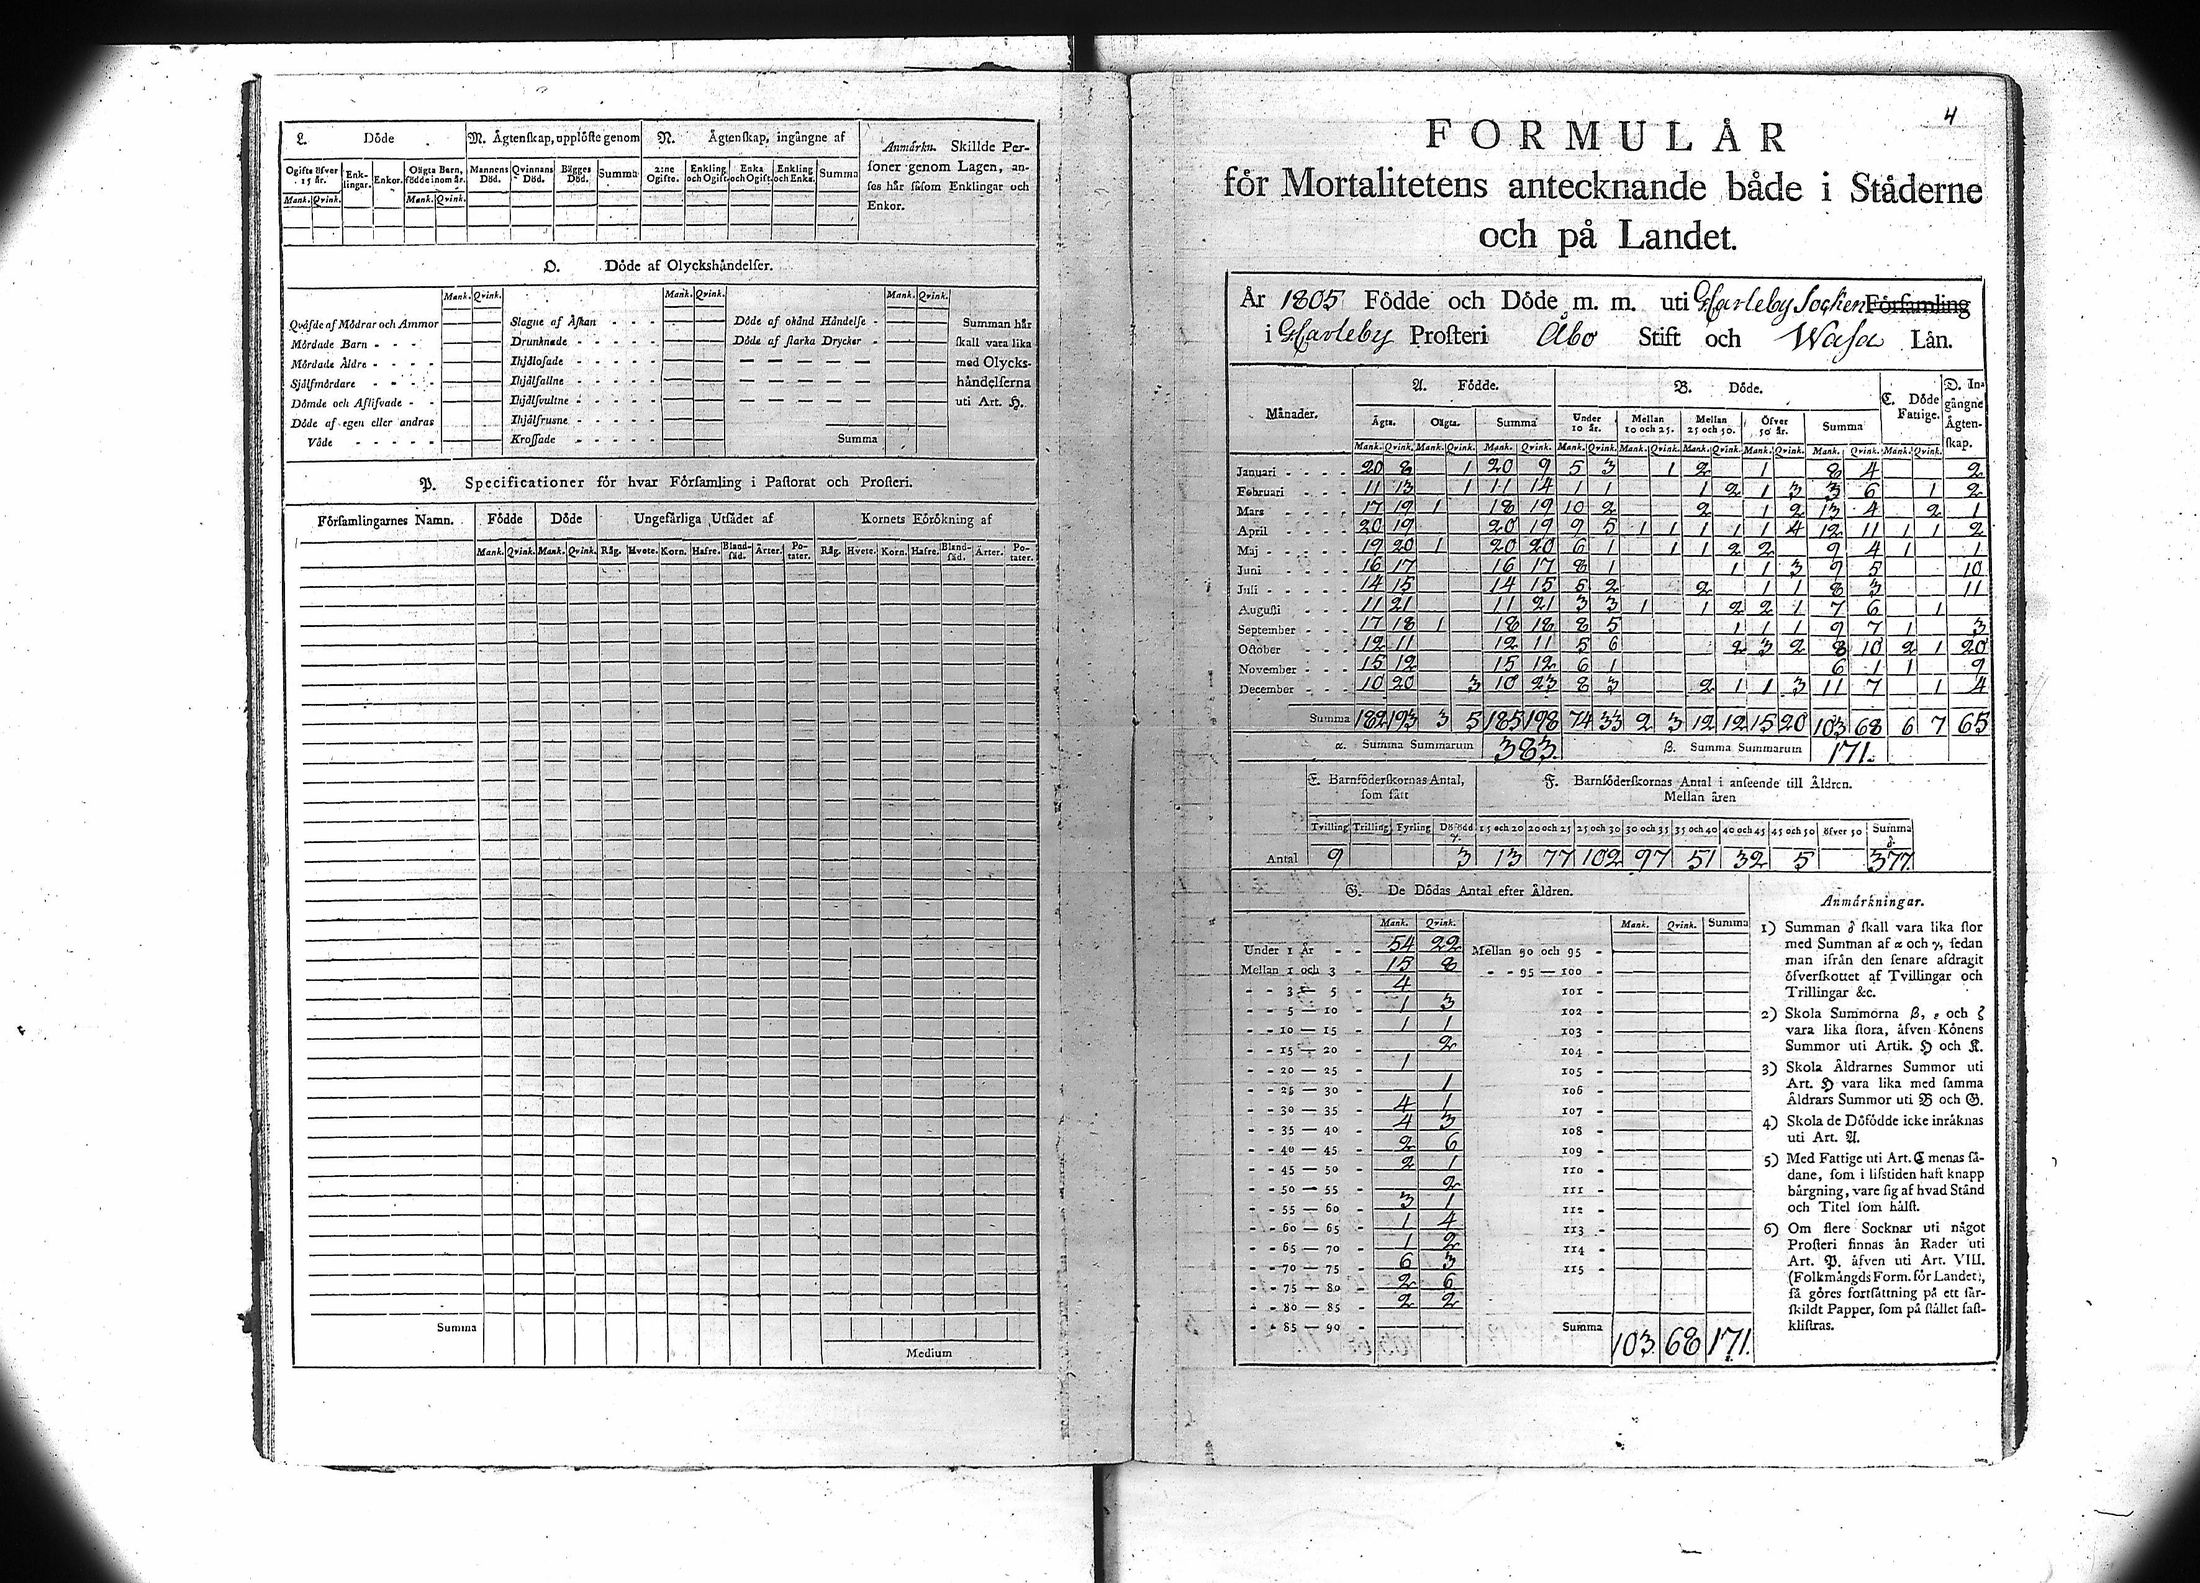 L. Döde
M. Ägtenskap, upplöste genom
N. Ägtenskap, ingångne af
Anmärkn. Skillde Personer genom Lagen, anses här såsom Enklingar och Enkor.
Ogifte öfver 15 år. Enklingar. Enkor. Oägta Barn, födde inom år. Mannens Död. Qvinnans Död. Bägges Död. Summa 2:ne Ogifte. Enkling och Ogift. Enka och Ogift. Enkling och Enka. Summa
Mank. Qvink. Mank. Qvink.
O. Döde af Olyckshändelser.
Mank. Qvink. Mank. Qvink. Mank. Qvink.
Qväfde af Mödrar och Ammor Slagne af Åskan - - - Döde af okänd Händelse - Summan här
Mördade Barn - - - Drunknade - - - - - Döde af starka Drycker - skall vara lika
Mördade Äldre - - - - Ihjälosade - - - - - med Olycks-
Sjelfmördare - - - - Ihjälfallne - - - - - händelserna
Dömde och Aflifvade - - Ihjälsvultne - - - - - uti Art. H.
Döde af egen eller andras Ihjälfrusne - - - - -
Våde - - - - - Krossade - - - - - Summa
P. Specificationer för hvar Församling i Pastorat och Prosteri.
Församlingarnes Namn. Födde Döde Ungefärliga Utsädet af Kornets Förökning af
Mank. Qvink. Mank. Qvink. Råg. Hvete. Korn. Hafre. Blandsäd. Ärter. Potater. Råg. Hvete. Korn. Hafre. Blandsäd. Ärter. Potater.
Summa
Medium
4
FORMULÄR
för Mortalitetens antecknande både i Städerne
och på Landet.
År 1805 Födde och Döde m. m. uti G. Carleby Socken Församling
i G. Carleby Prosteri Åbo Stift och Wasa Län.
Månader. A. Födde. B. Döde. C. Döde Fattige. D. Ingångne Ägtenskap.
Ägta. Oägta. Summa Under 10 år. Mellan 10 och 25. Mellan 25 och 50. Öfver 50 år. Summa
Mank. Qvink. Mank. Qvink. Mank. Qvink. Mank. Qvink. Mank. Qvink. Mank. Qvink. Mank. Qvink. Mank. Qvink. Mank. Qvink.
Januari - - - - 20 8 1 20 9 5 3 1 2 1 8 4 2
Februari - - - 11 13 1 11 14 1 1 1 2 1 3 3 6 1 2
Mars - - - - 17 19 1 18 19 10 2 2 1 2 13 4 2 1
April - - - - 20 19 20 19 9 5 1 1 1 1 1 4 12 11 1 1 2
Maj - - - - - 19 20 1 20 20 6 1 1 1 2 2 9 4 1 1
Juni - - - - 16 17 16 17 8 1 1 1 3 9 5 10
Juli - - - - - 14 15 14 15 5 2 2 1 1 8 3 11
Augusti - - - 11 21 11 21 3 3 1 1 2 2 1 7 6 1
September - - - 17 18 1 18 18 8 5 1 1 1 9 7 1 3
October - - - 12 11 12 11 5 6 2 3 2 8 10 2 1 20
November - - - 15 12 15 12 6 1 6 1 1 9
December - - - 10 20 3 10 23 8 3 2 1 1 3 11 7 1 4
Summa 182 193 3 5 185 198 74 33 2 3 12 12 15 20 103 68 6 7 65
α. Summa Summarum 383. β. Summa Summarum 171.
E. Barnföderskornas Antal, som fått
F. Barnföderskornas Antal i anseende till Åldren.
Mellan åren
Tvilling Trilling Fyrling Dödfödd γ. 15 och 20 20 och 25 25 och 30 30 och 35 35 och 40 40 och 45 45 och 50 öfver 50 Summa δ.
Antal 9 3 13 77 102 97 51 32 5 377.
G. De Dödas Antal efter Åldren.
Mank. Qvink. Mank. Qvink. Summa
Under 1 År - - 54 22 Mellan 90 och 95 -
Mellan 1 och 3 - 15 8 - - 95 — 100 -
- - 3 — 5 - 4 101 -
- - 5 — 10 - 1 3 102 -
- - 10 — 15 - 1 1 103 -
- - 15 — 20 - 2 104 -
- - 20 — 25 - 1 105 -
- - 25 — 30 - 1 106 -
- - 30 — 35 - 4 1 107 -
- - 35 — 40 - 4 3 108 -
- - 40 — 45 - 2 6 109 -
- - 45 — 50 - 2 1 110 -
- - 50 — 55 - 2 111 -
- - 55 — 60 - 3 1 112 -
- - 60 — 65 - 1 4 113 -
- - 65 — 70 - 1 2 114 -
- - 70 — 75 - 6 3 115 -
- - 75 — 80 - 2 6
- - 80 — 85 - 2 2
- - 85 — 90 - Summa 103. 68 171.
Anmärkningar.
1) Summan δ skall vara lika stor
med Summan af α och γ, sedan
man ifrån den senare afdragit
öfverskottet af Tvillingar och
Trillingar &c.
2) Skola Summorna β, ε och ζ
vara lika stora, äfven Könens
Summor uti Artik. H och K.
3) Skola Åldrarnes Summor uti
Art. H vara lika med samma
Åldrars Summor uti B och G.
4) Skola de Döfödde icke inräknas
uti Art. A.
5) Med Fattige uti Art. C menas så-
dane, som i lifstiden haft knapp
bärgning, vare sig af hvad Stånd
och Titel som hälst.
6) Om flere Socknar uti något
Prosteri finnas än Rader uti
Art. P. äfven uti Art. VIII.
(Folkmängds Form. för Landet),
så göres fortsättning på ett sär-
skildt Papper, som på stället fast-
klistras.